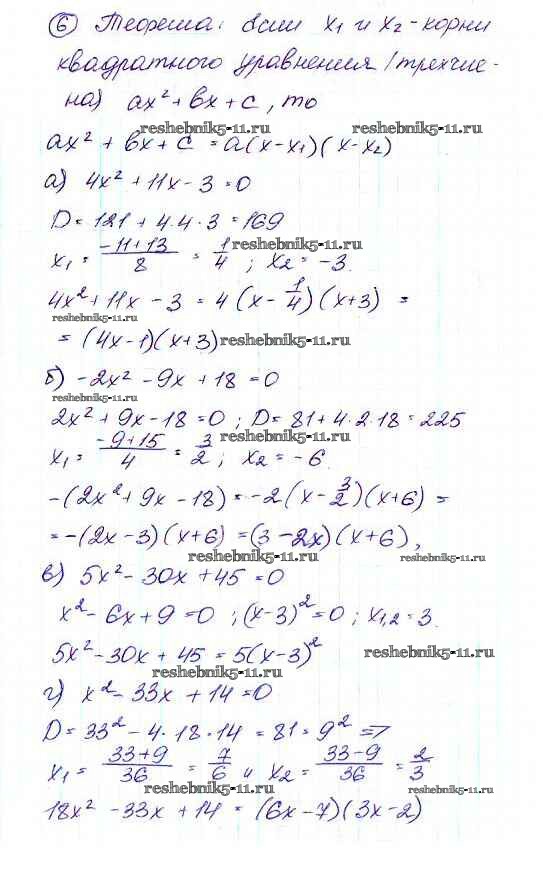 ⑥ Теорема: Если x₁ и x₂ - корни
квадратного уравнения /трехчле-
на) ax² + bx + c, то
reshebnik5-11.ru
ax² + bx + c = a(x - x₁)(x - x₂)
а) 4x² + 11x - 3 = 0
D = 121 + 4·4·3 = 169
x₁ = (-11+13)/8 = 1/4 ; x₂ = -3.
reshebnik5-11.ru
4x² + 11x - 3 = 4(x - 1/4)(x + 3) =
reshebnik5-11.ru
= (4x - 1)(x + 3) reshebnik5-11.ru
б) -2x² - 9x + 18 = 0
reshebnik5-11.ru
2x² + 9x - 18 = 0 ; D = 81 + 4·2·18 = 225
reshebnik5-11.ru
x₁ = (-9+15)/4 = 3/2 ; x₂ = -6.
-(2x² + 9x - 18) = -2(x - 3/2)(x + 6) =
= -(2x - 3)(x + 6) = (3 - 2x)(x + 6),
reshebnik5-11.ru reshebnik5-11.ru
в) 5x² - 30x + 45 = 0
x² - 6x + 9 = 0 ; (x - 3)² = 0 ; x₁,₂ = 3.
5x² - 30x + 45 = 5(x - 3)² reshebnik5-11.ru
reshebnik5-11.ru
г) x² - 33x + 14 = 0
D = 33² - 4·18·14 = 81 = 9² ⇒
x₁ = (33+9)/36 = 7/6 и x₂ = (33-9)/36 = 2/3
reshebnik5-11.ru reshebnik5-11.ru
18x² - 33x + 14 = (6x - 7)(3x - 2)